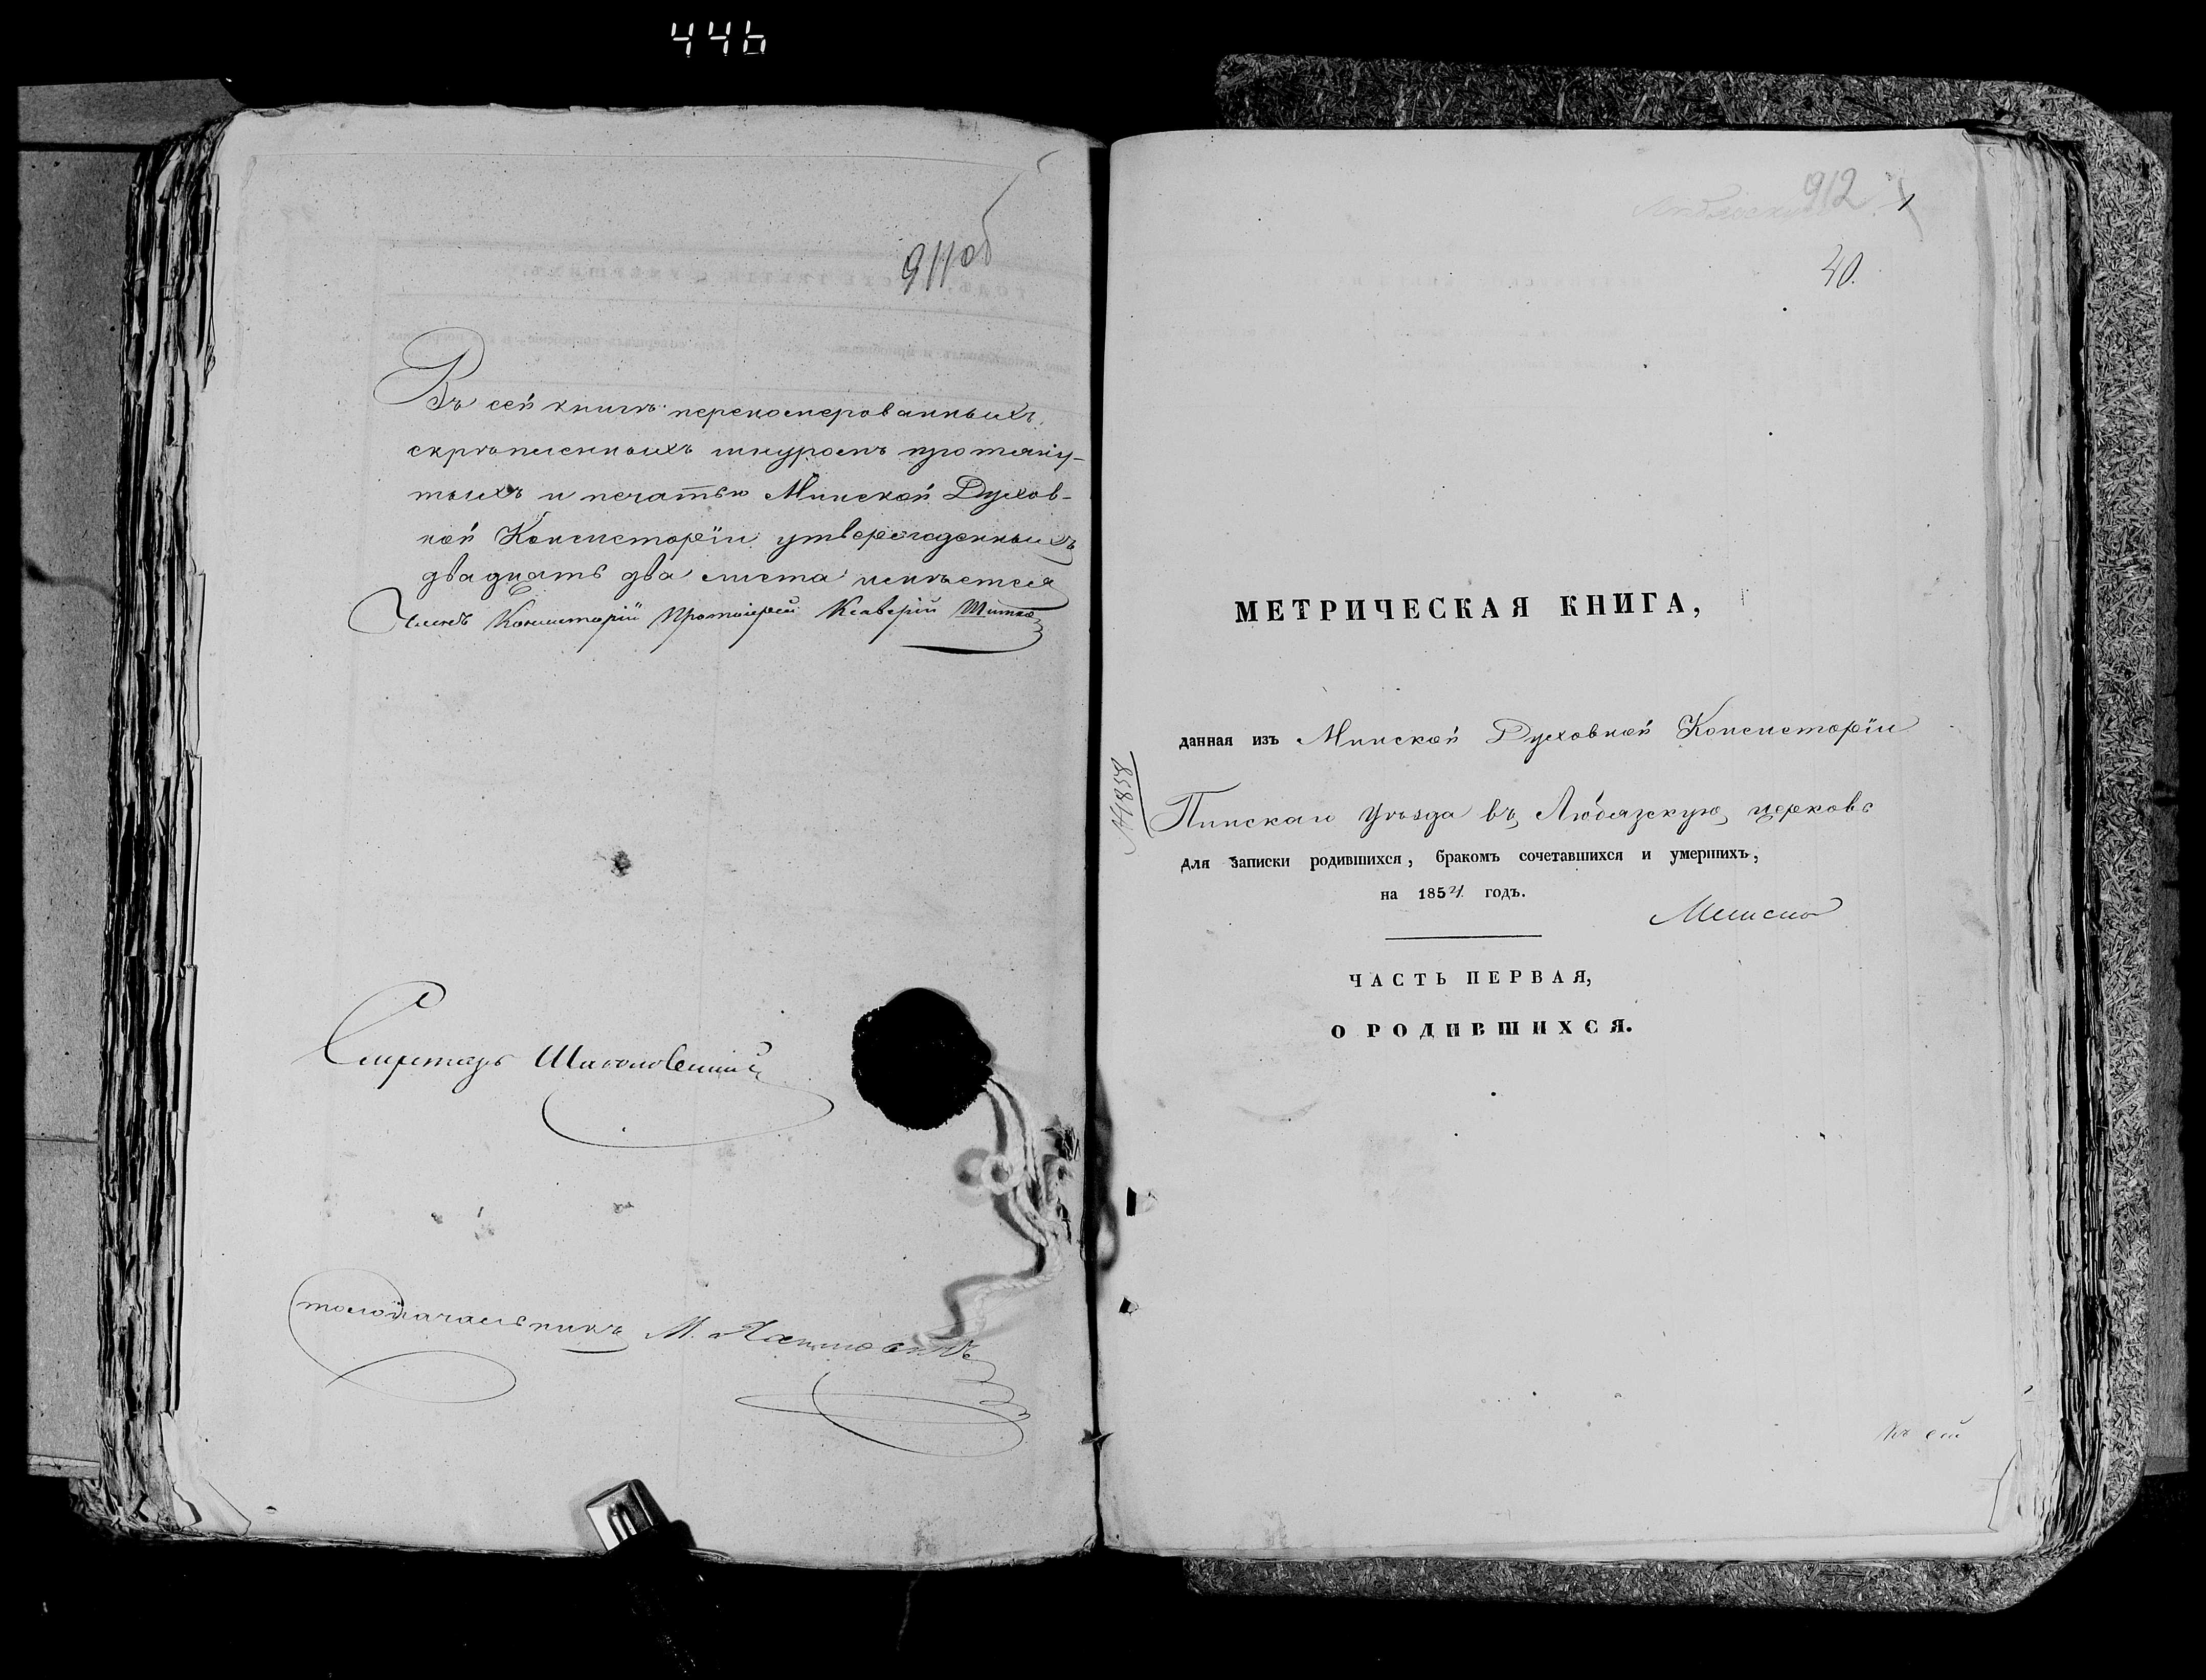 446
911об
Въ сей книгѣ перенумерованныхъ,
скрѣпленныхъ шнуромъ протяну-
тыхъ и печатью Минской Духов-
ной Консисторіи утвержденныхъ
двадцать два листа имѣется
Членъ Консисторіи Протоіерей Ксаверій
Секретарь
Столоначальникъ М.
912
40.
МЕТРИЧЕСКАЯ КНИГА,
данная изъ Минской Духовной Консисторіи
№ 1858
Пинскаго Уѣзда въ Любязскую церковь
для записки родившихся, бракомъ сочетавшихся и умершихъ,
на 1854 годъ.
ЧАСТЬ ПЕРВАЯ,
О РОДИВШИХСЯ.
Къ сей